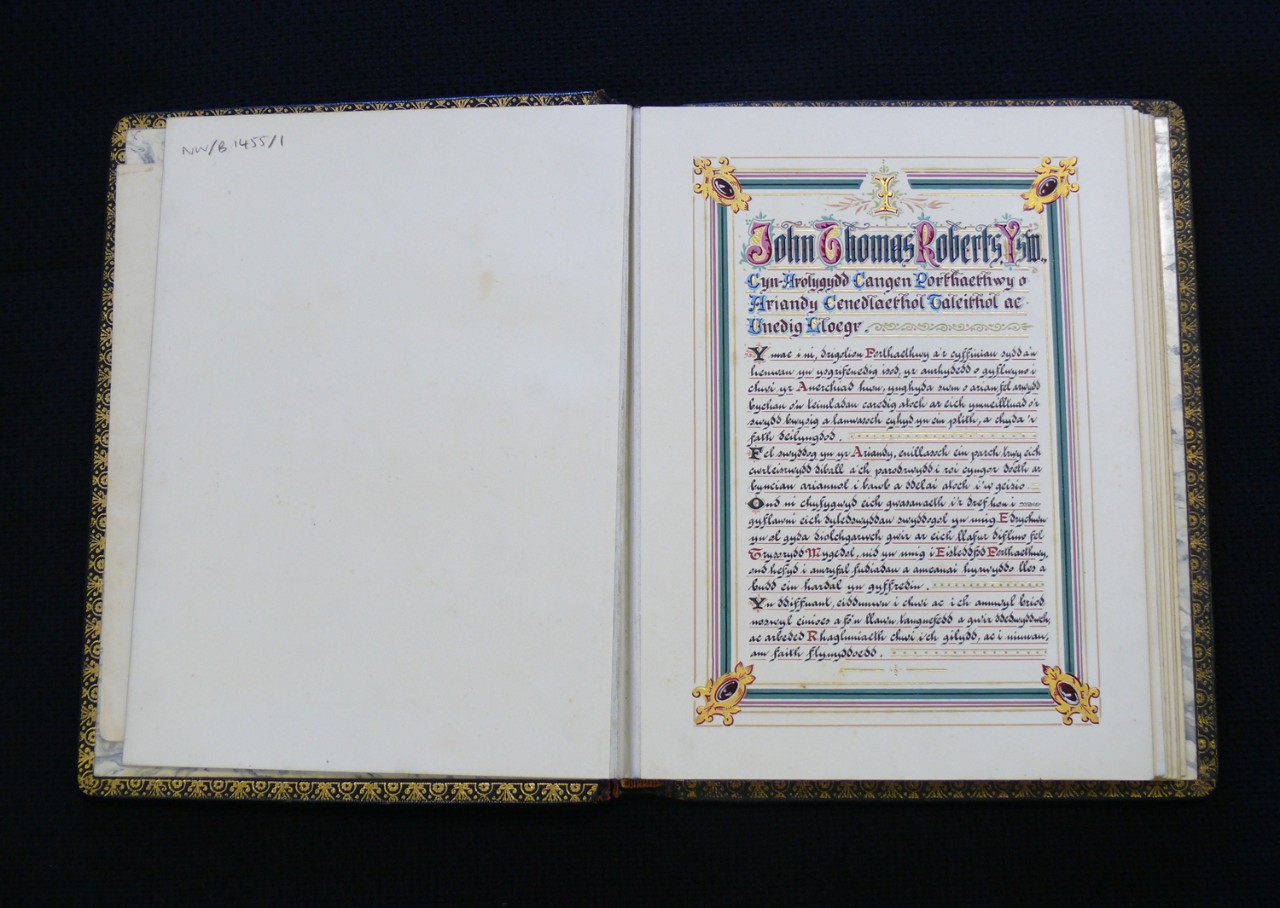 NW/B 1455/1
I
John Thomas Roberts, Ysw.,
Cyn-Arolygydd Cangen Porthaethwy o
Ariandy Cenedlaethol Taleithiol ac
Unedig Lloegr.
Y mae i ni, drigolion Porthaethwy a'r cyffiniau sydd a'u
henwau yn ysgrifenedig isod, yr anrhydedd o gyflwyno i
chwi yr Anerchiad hwn, ynghyda swm o arian, fel arwydd
bychan o'n teimladau caredig atoch ar eich ymneilltuad o'r
swydd bwysig a lanwasoch cyhyd yn ein plith, a chyda'r
fath deilyngdod.
Fel swyddog yn yr Ariandy, enillasoch ein parch trwy eich
cwrteisrwydd diball a'ch parodrwydd i roi cyngor doeth ar
bynciau ariannol i bawb a ddelai atoch i'w geisio.
Ond ni chyfyngwyd eich gwasanaeth i'r dref hon i
gyflawni eich dyledswyddau swyddogol yn unig. Edrychwn
yn ol gyda diolchgarwch gwir ar eich llafur diflino fel
Trysorydd Mygedol, nid yn unig i Eisteddfod Porthaethwy,
ond hefyd i amryfal fudiadau a amcanai hyrwyddo lles a
budd ein hardal yn gyffredin.
Yn ddiffuant, eiddunwn i chwi ac i'ch anwyl briod
noswyl einioes a fo'n llawn tangnefedd a gwir ddedwyddwch,
ac arbeded Rhagluniaeth chwi i'ch gilydd, ac i ninnau,
am faith flynyddoedd.